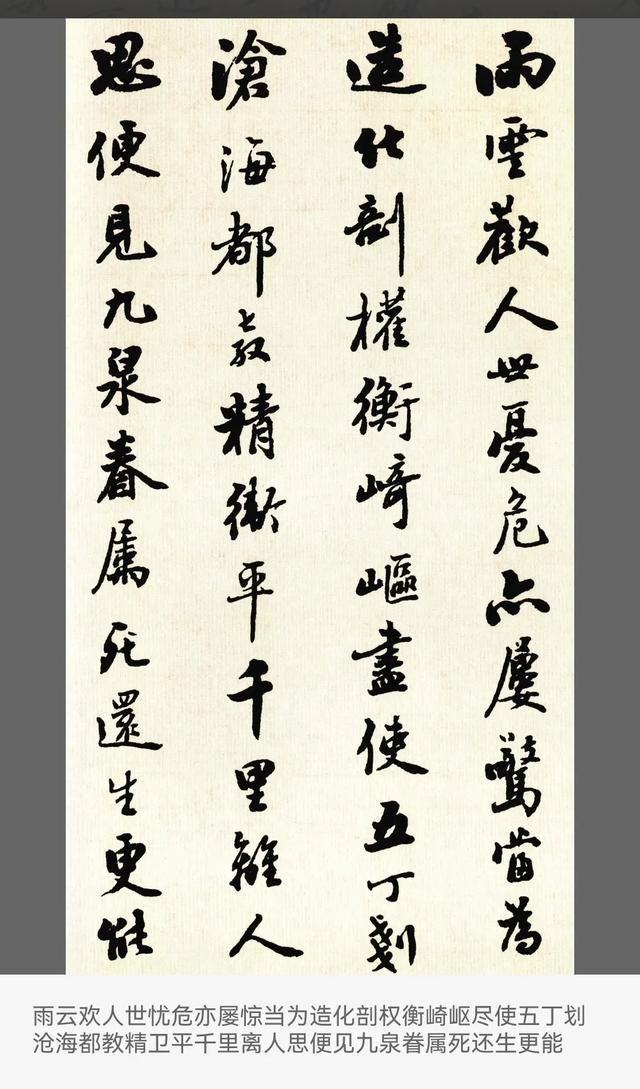 雨雲歡人世憂危亦屢驚當為
造化剖權衡崎嶇盡使五丁剗
滄海都教精衛平千里離人
思便見九泉眷属死還生更能
雨云欢人世忧危亦屡惊当为造化剖权衡崎岖尽使五丁划
沧海都教精卫平千里离人思便见九泉眷属死还生更能